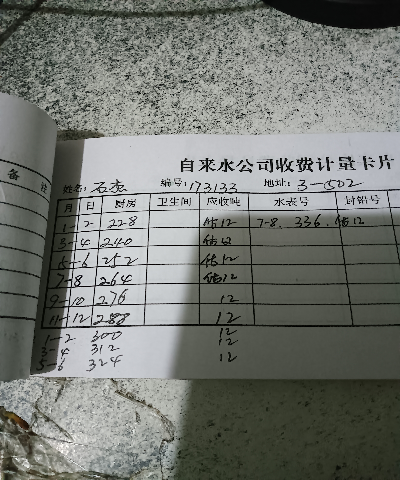 备注
自来水公司收费计量卡片
姓名: 石 编号: 173133 地址: 3-502
月 日 厨房 卫生间 应收吨 水表号 封铅号
1-2 228 估12 7-8. 336. 估12
3-4 240 估12
5-6 252 估12
7-8 264 估12
9-10 276 12
11-12 288 12
1-2 300 12
3-4 312 12
5-6 324 12